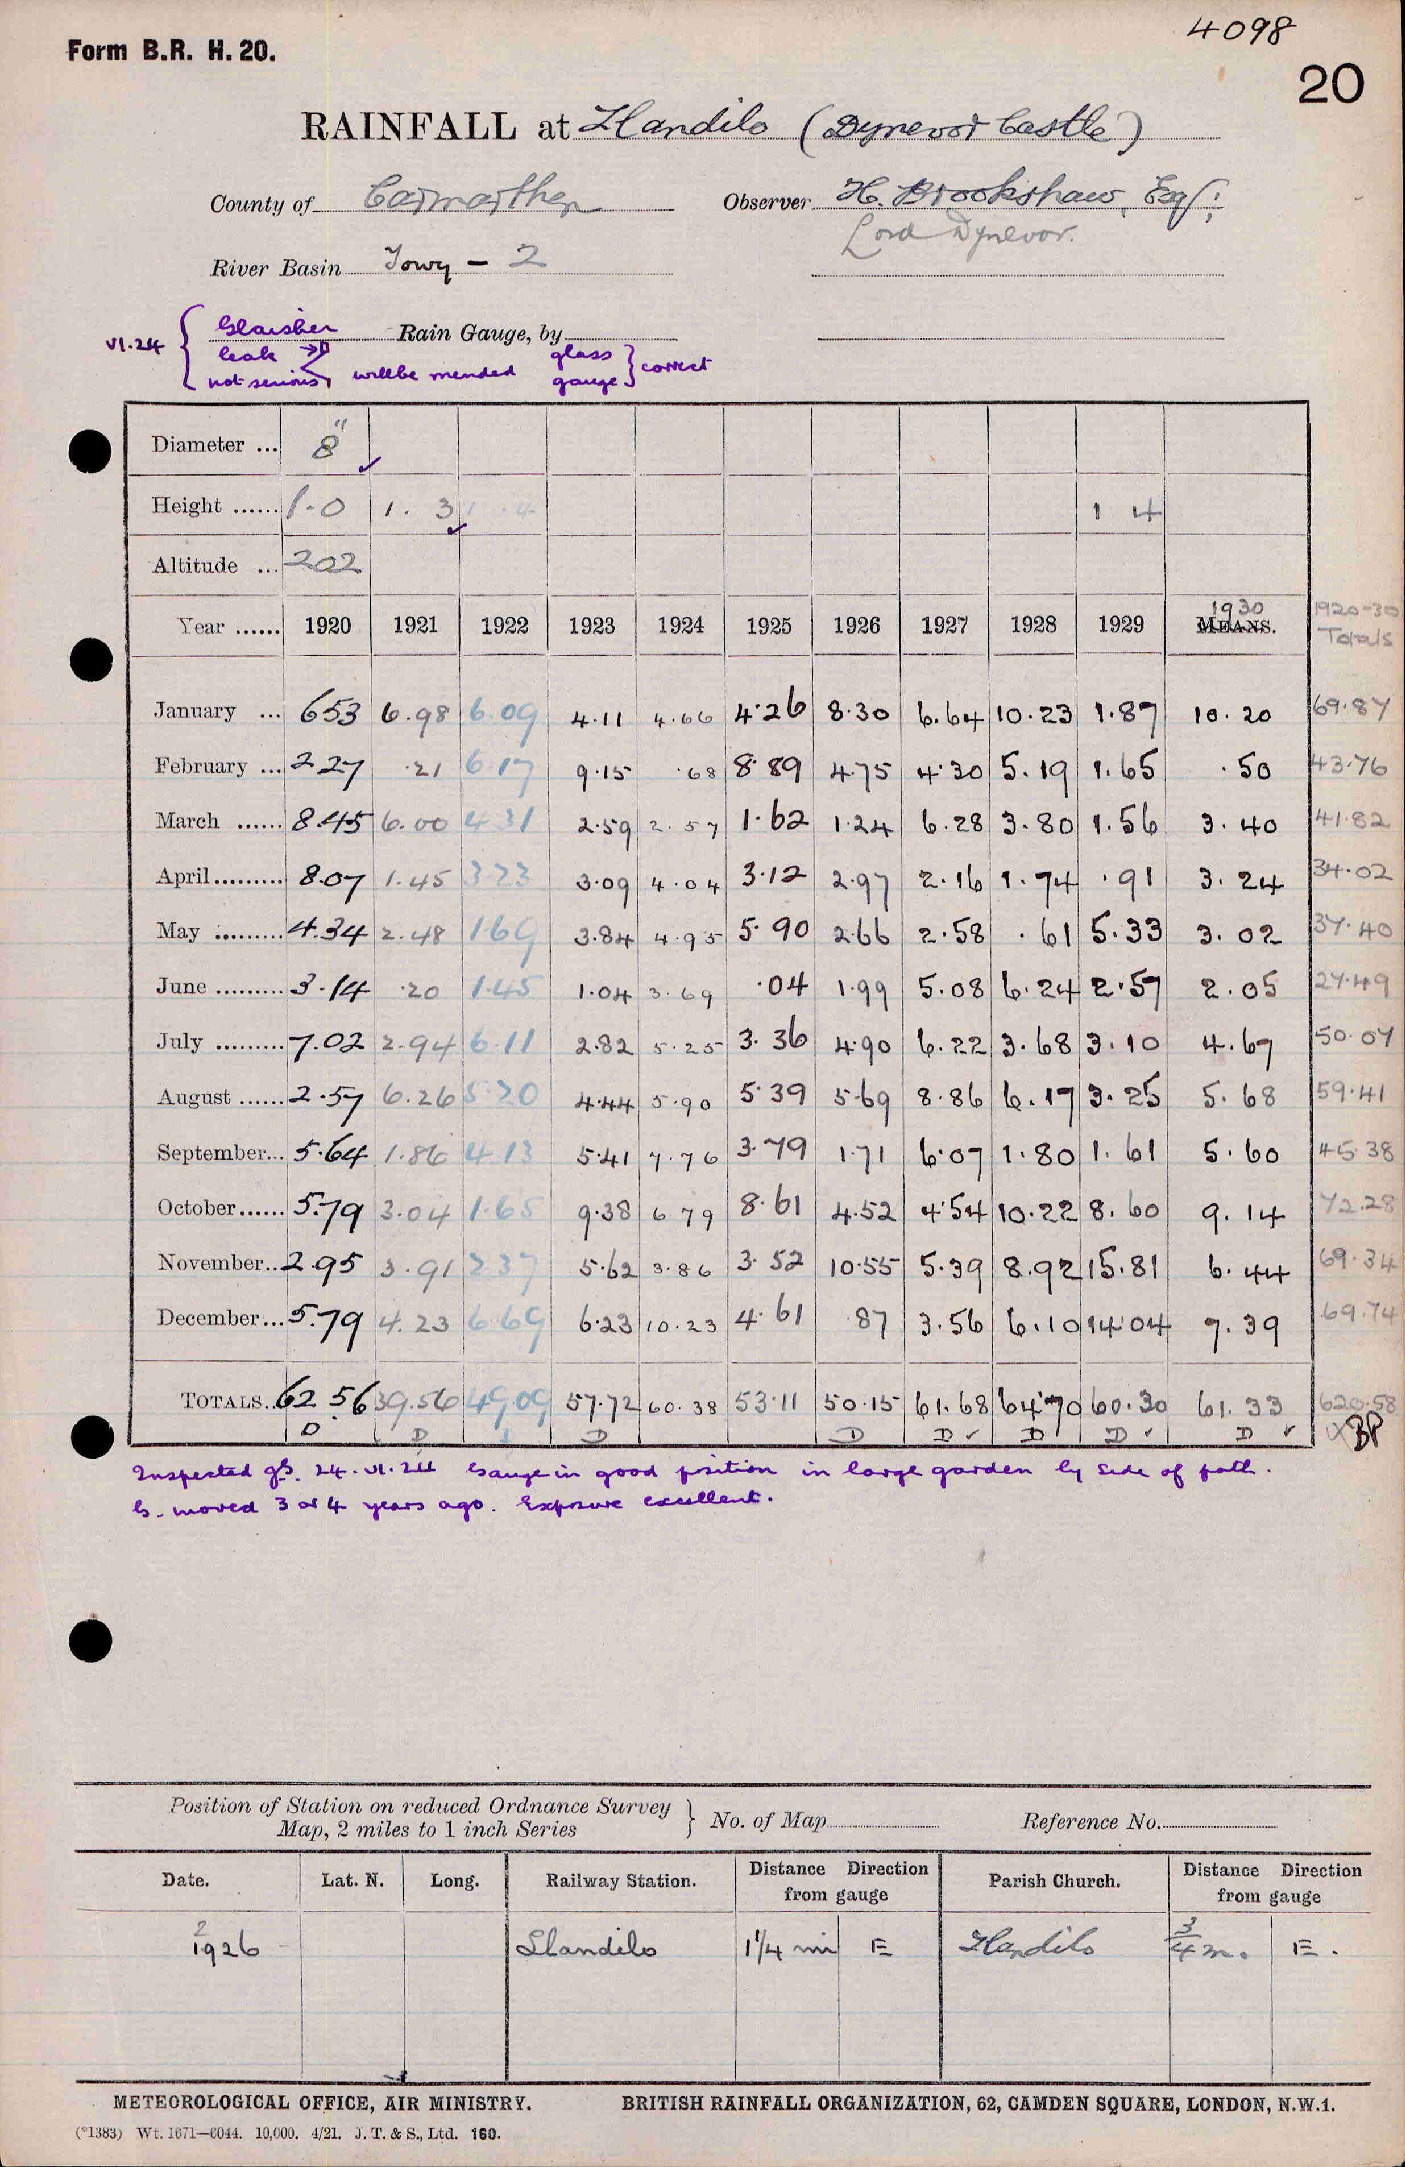 4098
Form B.R. H. 20.
20
RAINFALL at Llandilo (Dynevor Castle)
County of Carmarthen Observer H. Brookshaw, Esq:
Lord Dynevor.
River Basin Towy - 2
VI.24 { Glaisher Rain Gauge, by
leak glass } correct
not serious will be mended gauge
Diameter ... 8"
Height ...... 1.0 1. 3 1 . 4 1 4
Altitude ... 202
Year ...... 1920 1921 1922 1923 1924 1925 1926 1927 1928 1929 MEANS. 1930 1920-30 Totals
January ... 653 6.98 6.09 4.11 4.66 4.26 8.30 6.64 10.23 1.87 10.20 69.87
February ... 2.27 .21 6.17 9.15 .68 8.89 4.75 4.30 5.19 1.65 .50 43.76
March ...... 8.45 6.00 4.31 2.59 2.57 1.62 1.24 6.28 3.80 1.56 3.40 41.82
April......... 8.07 1.45 3.23 3.09 4.04 3.12 2.97 2.16 1.74 .91 3.24 34.02
May ......... 4.34 2.48 1.69 3.84 4.95 5.90 2.66 2.58 .61 5.33 3.02 37.40
June ......... 3.14 .20 1.45 1.04 3.69 .04 1.99 5.08 6.24 2.57 2.05 27.49
July ......... 7.02 2.94 6.11 2.82 5.25 3.36 4.90 6.22 3.68 3.10 4.67 50.07
August ...... 2.57 6.26 5.20 4.44 5.90 5.39 5.69 8.86 6.17 3.25 5.68 59.41
September... 5.64 1.86 4.13 5.41 7.76 3.79 1.71 6.07 1.80 1.61 5.60 45.38
October...... 5.79 3.04 1.65 9.38 6 79 8.61 4.52 4.54 10.22 8.60 9.14 72.28
November.. 2.95 3.91 2.37 5.62 3.86 3.52 10.55 5.39 8.92 15.81 6.44 69.34
December... 5.79 4.23 6.69 6.23 10.23 4.61 .87 3.56 6.10 14.04 7.39 69.74
TOTALS.. 62.56 39.56 49.09 57.72 60.38 53.11 50.15 61.68 64.70 60.30 61.33 620.58
D D D D D D D D BP
Inspected gS. 24.VI.24 Gauge in good position in large garden by side of path.
G. moved 3 or 4 years ago. Exposure excellent.
Position of Station on reduced Ordnance Survey Map, 2 miles to 1 inch Series } No. of Map Reference No.
Date. Lat. N. Long. Railway Station. Distance Direction from gauge Parish Church. Distance Direction from gauge
2
1926 Llandilo 1 1/4 mi E Llandilo 3/4 m. E.
METEOROLOGICAL OFFICE, AIR MINISTRY. BRITISH RAINFALL ORGANIZATION, 62, CAMDEN SQUARE, LONDON, N.W.1.
(*1383) Wt. 1671—6044. 10,000. 4/21. J. T. & S., Ltd. 160.